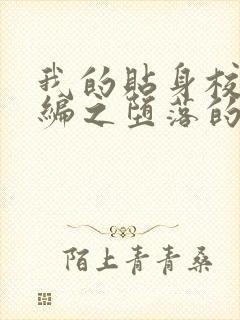 我的贴身校
编之堕落的
陌上青青桑